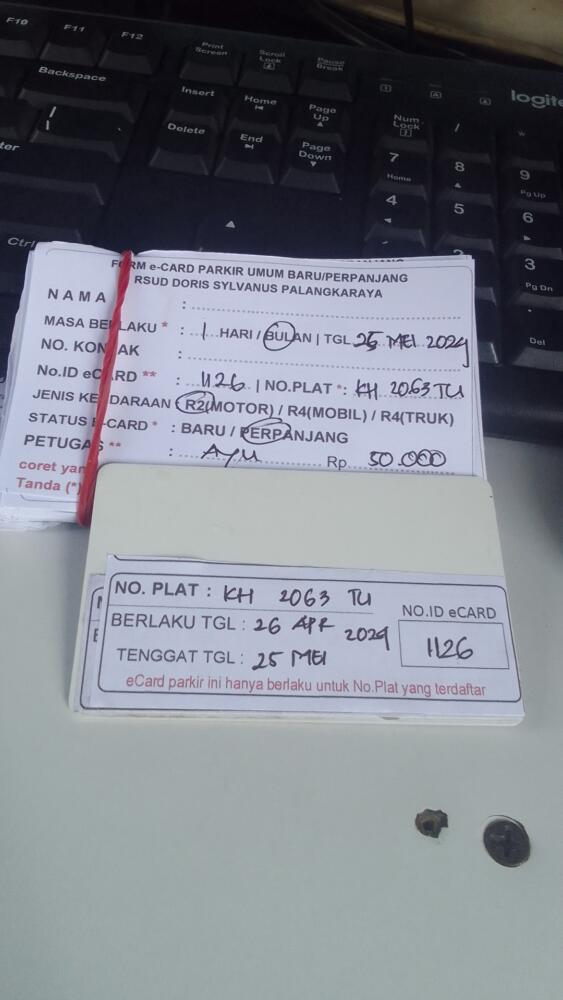 F10 F11 F12
Print Screen Scroll Lock Pause Break
Backspace
Insert Home Page Up
Delete End Page Down
logite
Num Lock /
7 Home 8 9 Pg Up
4 5 6
3 Pg Dn
Ctrl
Del
FORM e-CARD PARKIR UMUM BARU/PERPANJANG
RSUD DORIS SYLVANUS PALANGKARAYA
NAMA :
MASA BERLAKU * : 1 HARI / BULAN | TGL 25 MEI 2024
NO. KONTAK :
No.ID eCARD ** : 1126 | NO.PLAT *: KH 2063 TU
JENIS KENDARAAN R2(MOTOR) / R4(MOBIL) / R4(TRUK)
STATUS E-CARD * : BARU / PERPANJANG
PETUGAS ** : AYU Rp. 50.000
coret yan
Tanda (*)
NO. PLAT : KH 2063 TU
BERLAKU TGL : 26 APR 2024
TENGGAT TGL : 25 MEI
NO.ID eCARD
1126
eCard parkir ini hanya berlaku untuk No.Plat yang terdaftar